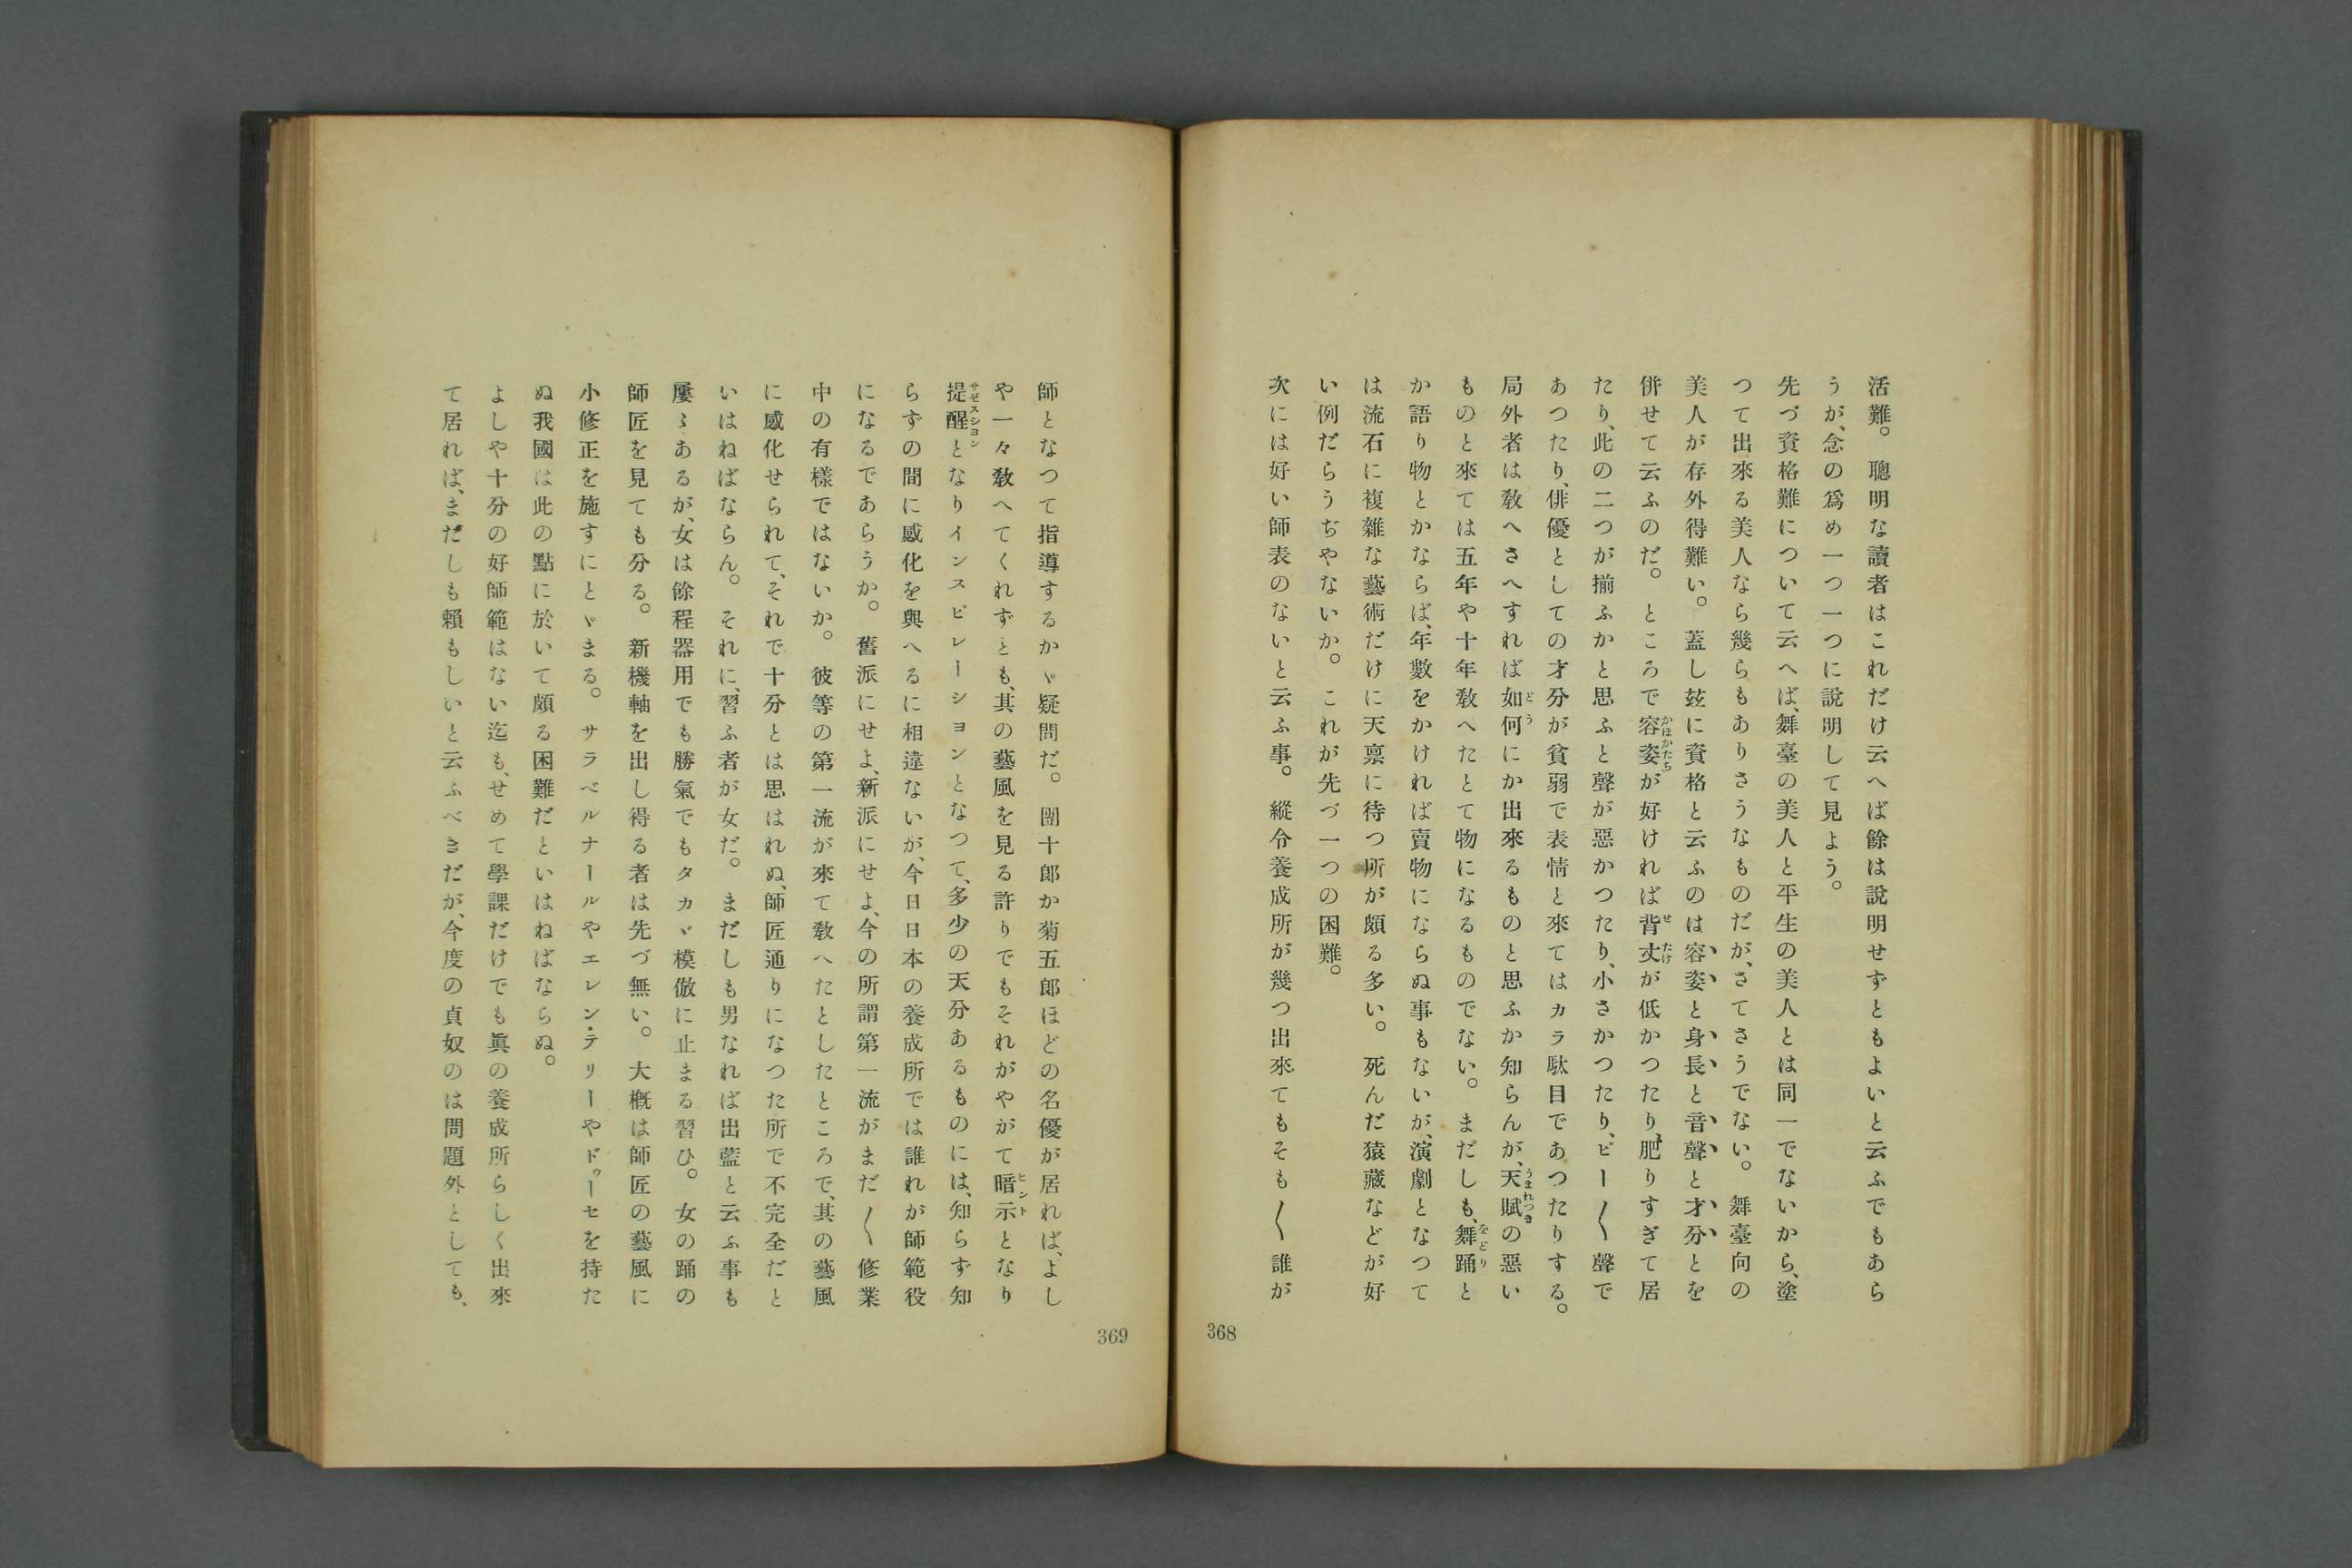 活難。　聰明な讀者はこれだけ云へば餘は說明せずともよいと云ふでもあら
うが、念の爲め一つ一つに說明して見よう。
先づ資格難について云へば、舞臺の美人と平生の美人とは同一でないから、塗
つて出來る美人なら幾らもありさうなものだが、さてさうでない。　舞臺向の
美人が存外得難い。　蓋し玆に資格と云ふのは容姿と身長と音聲と才分とを
併せて云ふのだ。　ところで容姿が好ければ背丈が低かつたり、肥りすぎて居
たり、此の二つが揃ふかと思ふと聲が惡かつたり、小さかつたり、ピー〱聲で
あつたり、俳優としての才分が貧弱で表情と來てはカラ駄目であつたりする。
局外者は敎へさへすれば如何にか出來るものと思ふか知らんが、天賦の惡い
ものと來ては五年や十年敎へたとて物になるものでない。　まだしも、舞踊と
か語り物とかならば、年數をかければ賣物にならぬ事もないが、演劇となつて
は流石に複雜な藝術だけに天禀に待つ所が頗る多い。　死んだ猿藏などが好
い例だらうぢやないか。　これが先づ一つの困難。
次には好い師表のないと云ふ事。　縱令養成所が幾つ出來てもそも〱誰が
368
師となつて指導するかゞ疑問だ。　團十郎か菊五郎ほどの名優が居れば、よし
や一々敎へてくれずとも、其の藝風を見る許りでもそれがやがて暗示となり
提醒となりインスピレーションとなつて、多少の天分あるものには、知らず知
らずの間に感化を與へるに相違ないが、今日日本の養成所では誰れが師範役
になるであらうか。　舊派にせよ、新派にせよ、今の所謂第一流がまだ〱修業
中の有樣ではないか。　彼等の第一流が來て敎へたとしたところで、其の藝風
に感化せられて、それで十分とは思はれぬ、師匠通りになつた所で不完全だと
いはねばならん。　それに、習ふ者が女だ。　まだしも男なれば出藍と云ふ事も
屢〻あるが、女は餘程器用でも勝氣でもタカゞ模倣に止まる習ひ。　女の踊の
師匠を見ても分る。　新機軸を出し得る者は先づ無い。　大槪は師匠の藝風に
小修正を施すにとゞまる。　サラベルナールやエレン・テリーやドゥーセを持た
ぬ我國は此の點に於いて頗る困難だといはねばならぬ。
よしや十分の好師範はない迄も、せめて學課だけでも眞の養成所らしく出來
て居れば、まだしも賴もしいと云ふべきだが、今度の貞奴のは問題外としても、
369